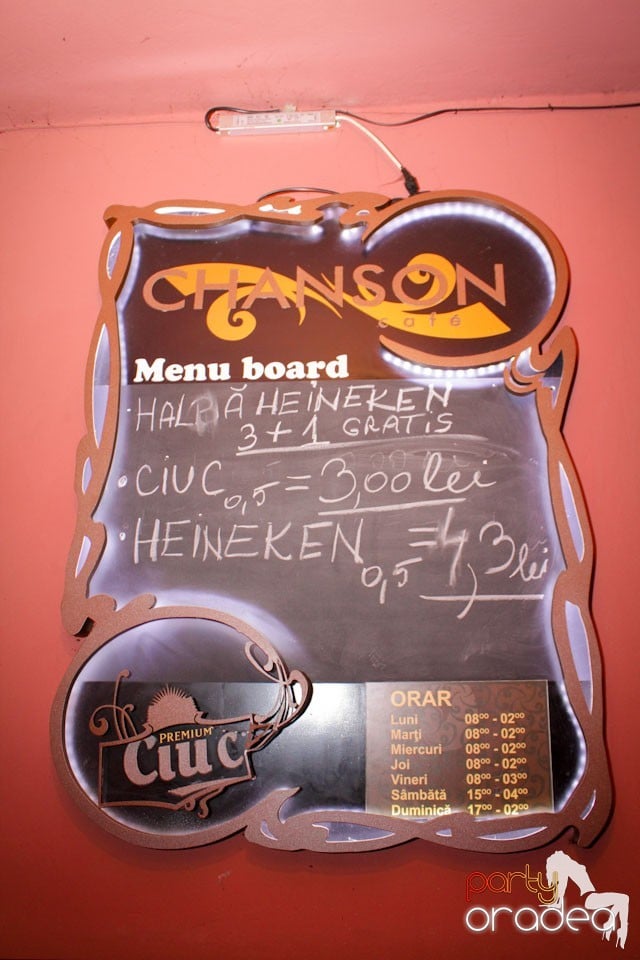 CHANSON
café
Menu board
HALBĂ HEINEKEN
3+1 GRATIS
• CIUC 0,5 = 3,00 lei
• HEINEKEN 0,5 = 4,3 lei
PREMIUM
Ciuc
ORAR
Luni 08⁰⁰ - 02⁰⁰
Marţi 08⁰⁰ - 02⁰⁰
Miercuri 08⁰⁰ - 02⁰⁰
Joi 08⁰⁰ - 02⁰⁰
Vineri 08⁰⁰ - 03⁰⁰
Sâmbătă 15⁰⁰ - 04⁰⁰
Duminică 17⁰⁰ - 02⁰⁰
party
oradea